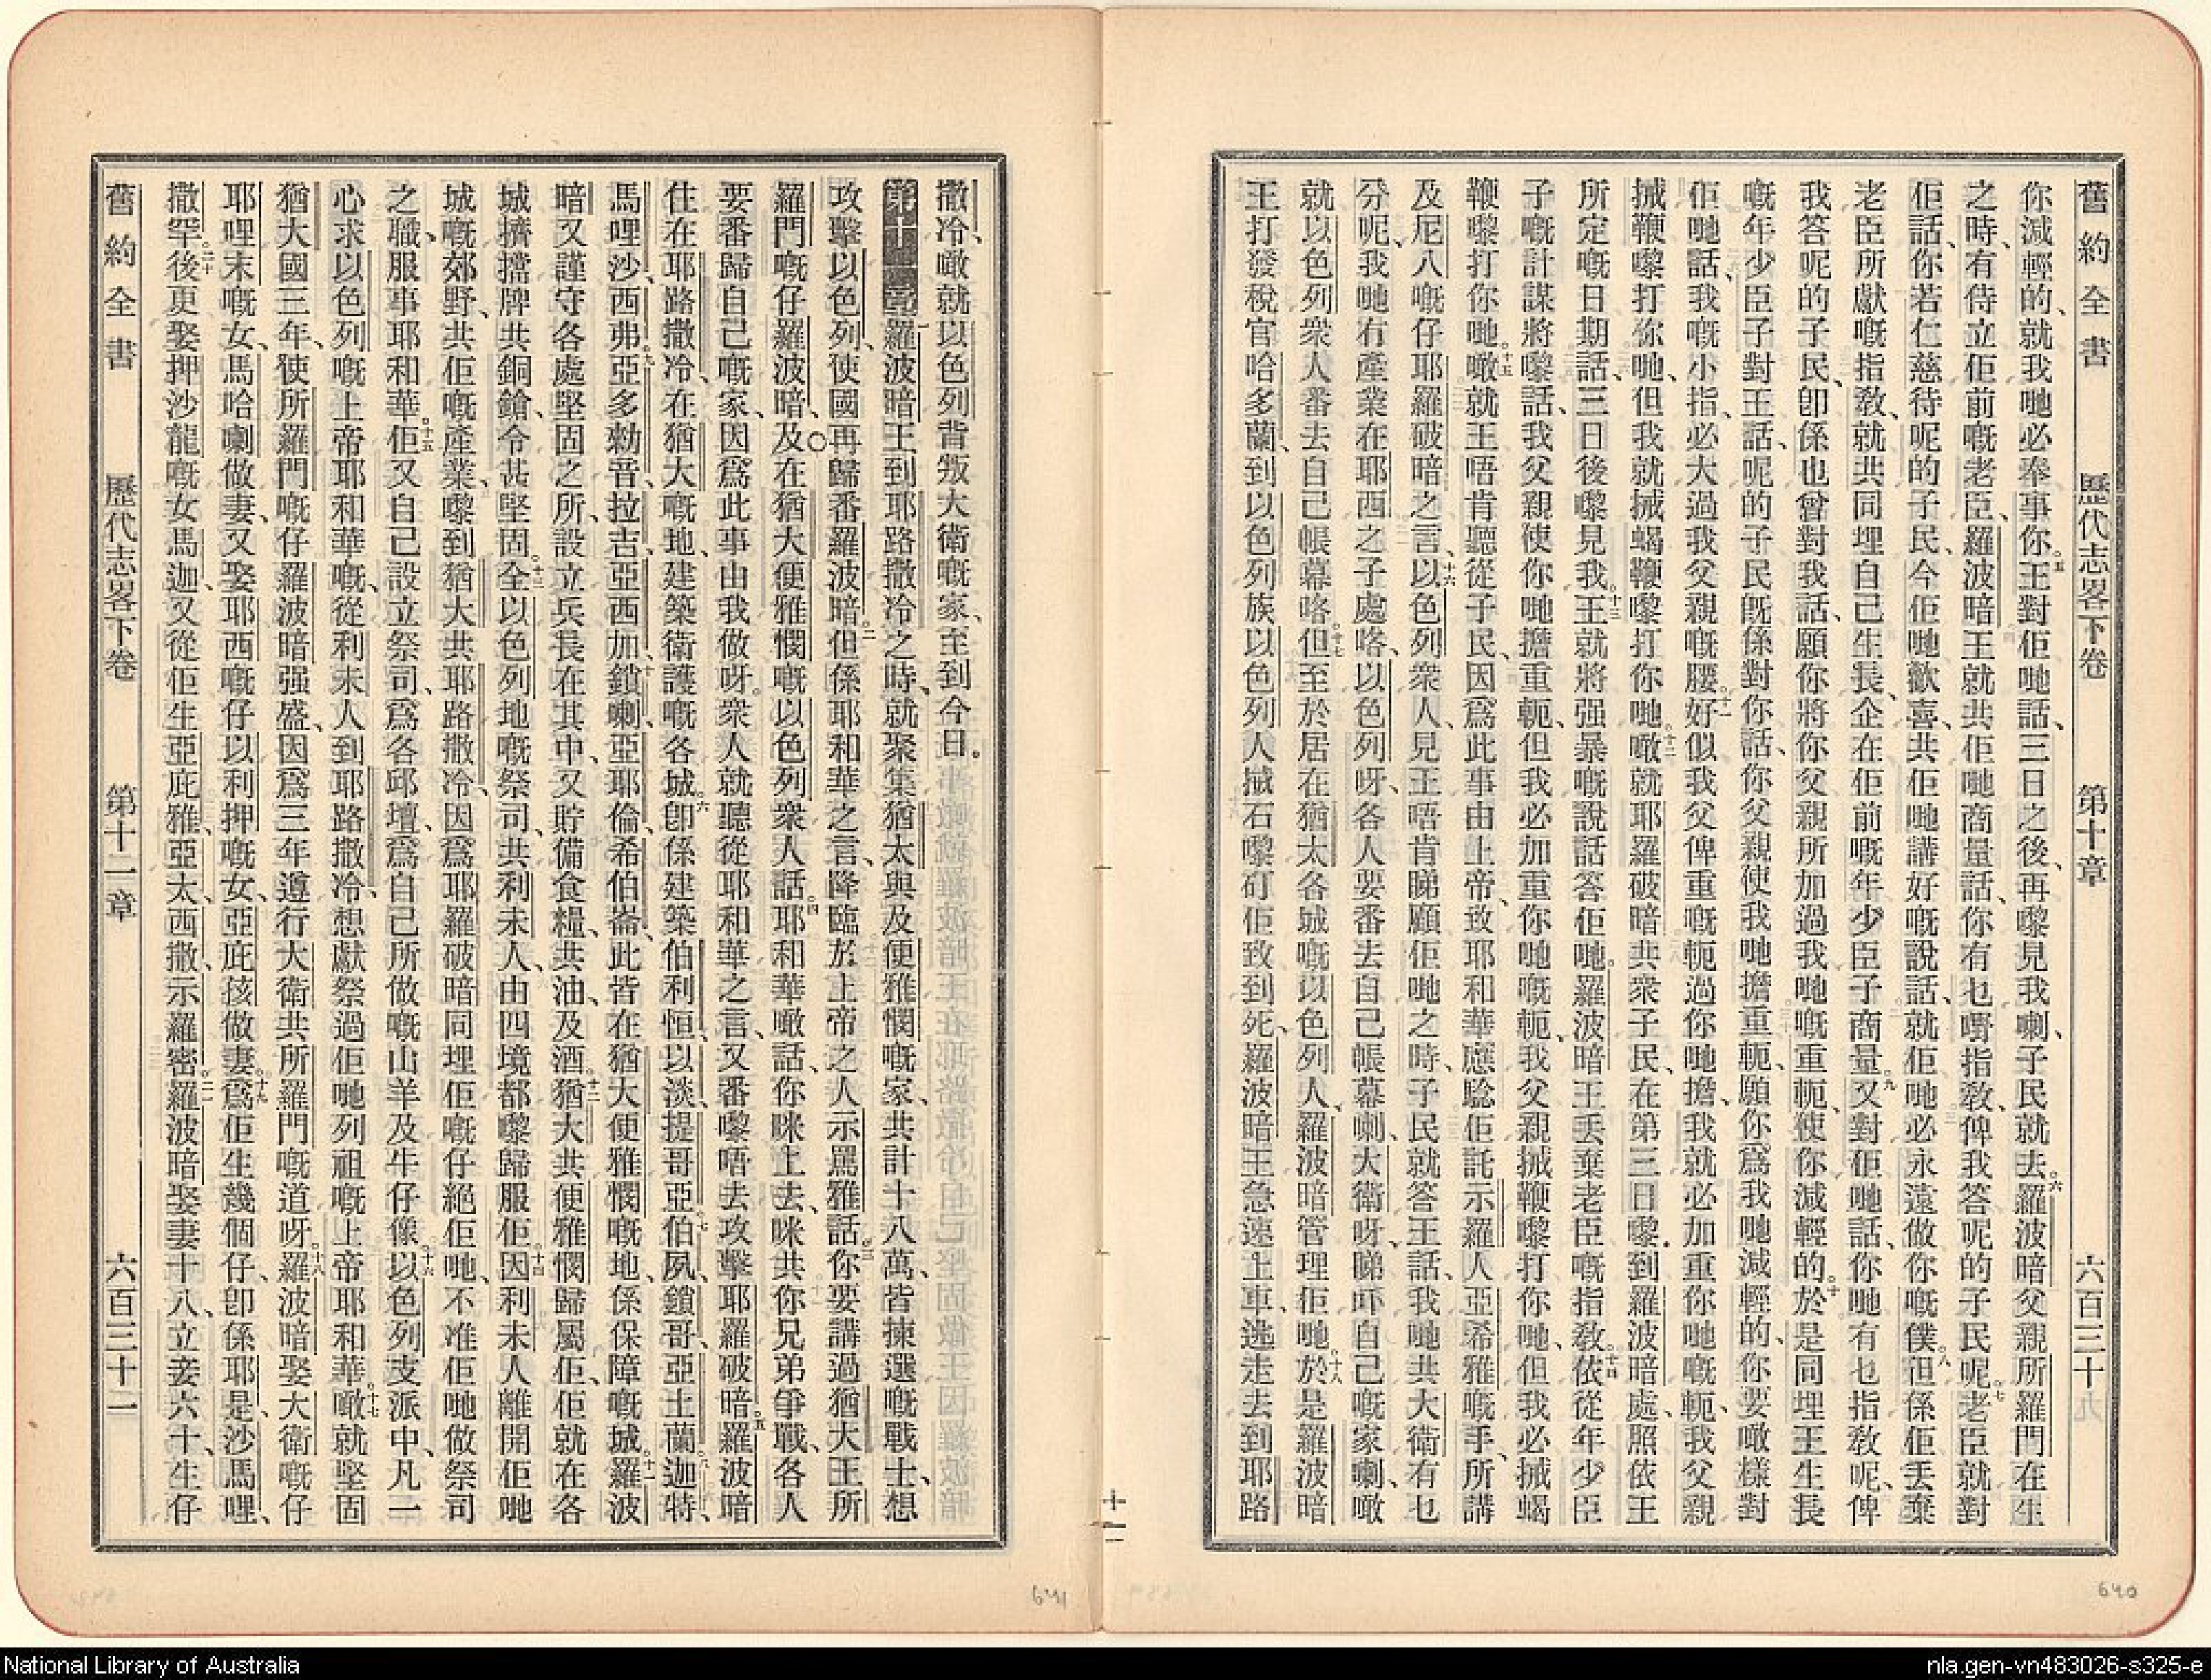 舊約全書 歷代志畧下卷 第十章 六百三十
你減輕的、就我哋必奉事你。五王對佢哋話、三日之後、再嚟見我喇、子民就去。六羅波暗父親所羅門在生
之時、有侍立佢前嘅老臣、羅波暗王就共佢哋商量話、你有乜嘢指敎、俾我答呢的子民呢。七老臣就對
佢話、你若仁慈待呢的子民、令佢哋歡喜、共佢哋講好嘅說話、就佢哋必永遠做你嘅僕。八但係佢丟棄
老臣所獻嘅指敎、就共同埋自己生長、企在佢前嘅年少臣子商量。九又對佢哋話、你哋有乜指敎呢、俾
我答呢的子民、卽係也曾對我話、願你將你父親所加過我哋嘅重軛、使你減輕的。十於是同埋王生長
嘅年少臣子對王話、呢的子民旣係對你話、你父親使我哋擔重軛、願你爲我哋減輕的、你要噉樣對
佢哋話、我嘅小指、必大過我父親嘅腰。十一好似我父俾重嘅軛過你哋擔、我就必加重你哋嘅軛、我父親
搣鞭嚟打你哋、但我就搣蝎鞭嚟打你哋。十二噉就耶羅破暗共衆子民、在第三日嚟到羅波暗處、照依王
所定嘅日期話、三日後嚟見我。十三王就將强暴嘅說話答佢哋。羅波暗王丟棄老臣嘅指敎。十四依從年少臣
子嘅計謀將嚟話、我父親使你哋擔重軛、但我必加重你哋嘅軛、我父親搣鞭嚟打你哋、但我必搣蝎
鞭嚟打你哋。十五噉就王唔肯聽從子民、因爲此事由上帝、致耶和華應騐佢託示羅人亞希雅嘅手、所講
及尼八嘅仔耶羅破暗之言、十六以色列衆人、見王唔肯睇顧佢哋之時、子民就答王話、我哋共大衛有乜
分呢、我哋有產業在耶西之子處咯、以色列呀、各人要番去自己帳幕喇、大衛呀、睇吓自己嘅家喇、噉
就以色列衆人番去自己帳幕咯。十七但至於居在猶太各城嘅以色列人、羅波暗管理佢哋。十八於是羅波暗
王打發稅官哈多蘭、到以色列族、以色列人搣石嚟矴佢致到死、羅波暗王急速上車、逃走去到耶路
撒冷、噉就以色列背叛大衛嘅家、至到今日。
第十一章 一羅波暗王到耶路撒冷之時、就聚集猶太與及便雅憫嘅家、共計十八萬、皆揀選嘅戰士、想
攻擊以色列、使國再歸番羅波暗。二但係耶和華之言、降臨於上帝之人示罵雅話。三你要講過猶大王所
羅門嘅仔羅波暗、及在猶大便雅憫嘅以色列衆人話。四耶和華噉話、你咪上去、咪共你兄弟爭戰、各人
要番歸自己嘅家、因爲此事由我做呀。衆人就聽從耶和華之言、又番嚟唔去攻擊耶羅破暗。五羅波暗
住在耶路撒冷、在猶大嘅地、建築衛護嘅各城。六卽係建築伯利恒、以淡、提哥亞。七伯夙、鎖哥、亞土蘭。八迦特、
馬哩沙、西弗。九亞多勑音、拉吉、亞西加。十鎖喇、亞耶倫、希伯崙、此皆在猶大便雅憫嘅地、係保障嘅城。十一羅波
暗又謹守各處堅固之所、設立兵長在其中、又貯備食糧、共油、及酒。十二猶大共便雅憫歸屬佢、佢就在各
城擠擋牌共銅鎗、令甚堅固。十三全以色列地嘅祭司、共利未人、由四境都嚟歸服佢。十四因利未人離開佢哋
城嘅郊野、共佢嘅產業、嚟到猶大共耶路撒冷、因爲耶羅破暗同埋佢嘅仔絕佢哋、不准佢哋做祭司
之職、服事耶和華。十五佢又自己設立祭司、爲各邱壇、爲自己所做嘅山羊及牛仔像。十六以色列支派中、凡一
心求以色列嘅上帝耶和華嘅、從利未人到耶路撒冷、想獻祭過佢哋列祖嘅上帝耶和華。十七噉就堅固
猶大國三年、使所羅門嘅仔羅波暗强盛、因爲三年遵行大衛共所羅門嘅道呀。十八羅波暗娶大衛嘅仔
耶哩末嘅女、馬哈喇做妻、又娶耶西嘅仔以利押嘅女、亞庇孩做妻。十九爲佢生幾個仔、卽係耶是、沙馬哩、
撒罕。二十後更娶押沙龍嘅女馬迦、又從佢生亞庇雅、亞太、西撒、示羅密。二一羅波暗娶妻十八、立妾六十、生仔
舊約全書 歷代志畧下卷 第十二章 六百三十一
十一
641
640
National Library of Australia
nla.gen-vn483026-s325-e